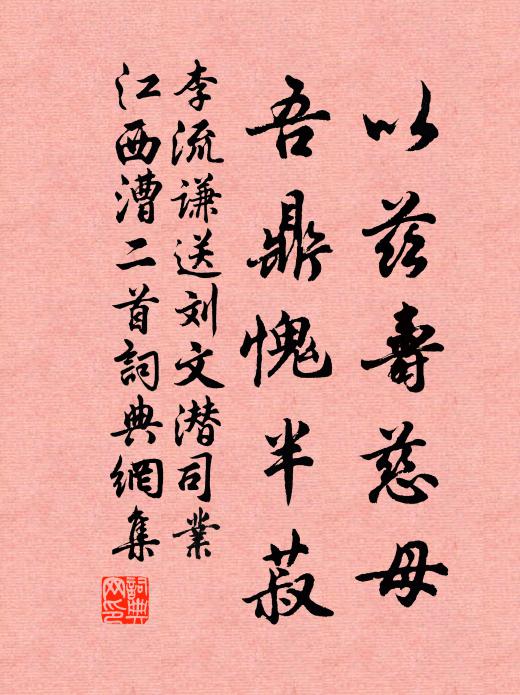 以兹壽慈母
吾鼎愧半菽
李流谦送刘文潜司業
江西漕二首詞典網集
詞典网印